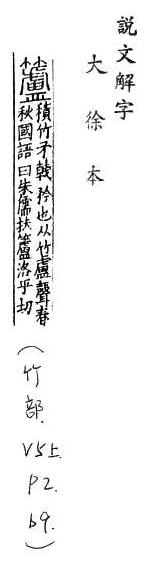 說文解字
大徐本
籚積竹矛戟矜也从竹盧聲春
秋國語曰朱儒扶籚洛乎切
(竹部.V5上.P2.b9.)